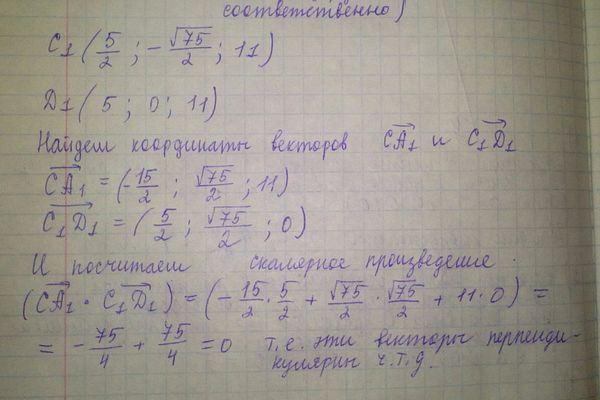 соответственно)
C₁ (5/2 ; -√75/2 ; 11)
D₁ (5 ; 0 ; 11)
Найдем координаты векторов CA₁→ и C₁D₁→
CA₁→ = (-15/2 ; √75/2 ; 11)
C₁D₁→ = (5/2 ; √75/2 ; 0)
И посчитаем скалярное произведение.
(CA₁→ · C₁D₁→) = (-15/2 · 5/2 + √75/2 · √75/2 + 11·0) =
= -75/4 + 75/4 = 0 т.е. эти векторы перпенди-
кулярны ч.т.д.